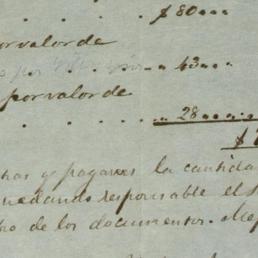 . . . $ 80...
por valor de
. . . . . 43...
por valor de
. . . . . 28...
$
y pagares la cantida
uedando responsable el
de los documentos. Mej